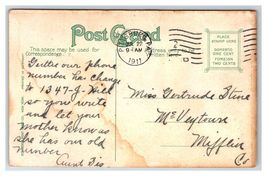 Post Card
This space may be used for Correspondence
PLACE
STAMP HERE
DOMESTIC
ONE CENT
FOREIGN
TWO CENTS
9 AM
1911
Guttie our phone
number has change
to 1347-J. Wish
so you and let
your Mother know as
she has our old
number.
Aunt Tis
Miss Gertrude Stine
Mc Veytown
Mifflin
Co